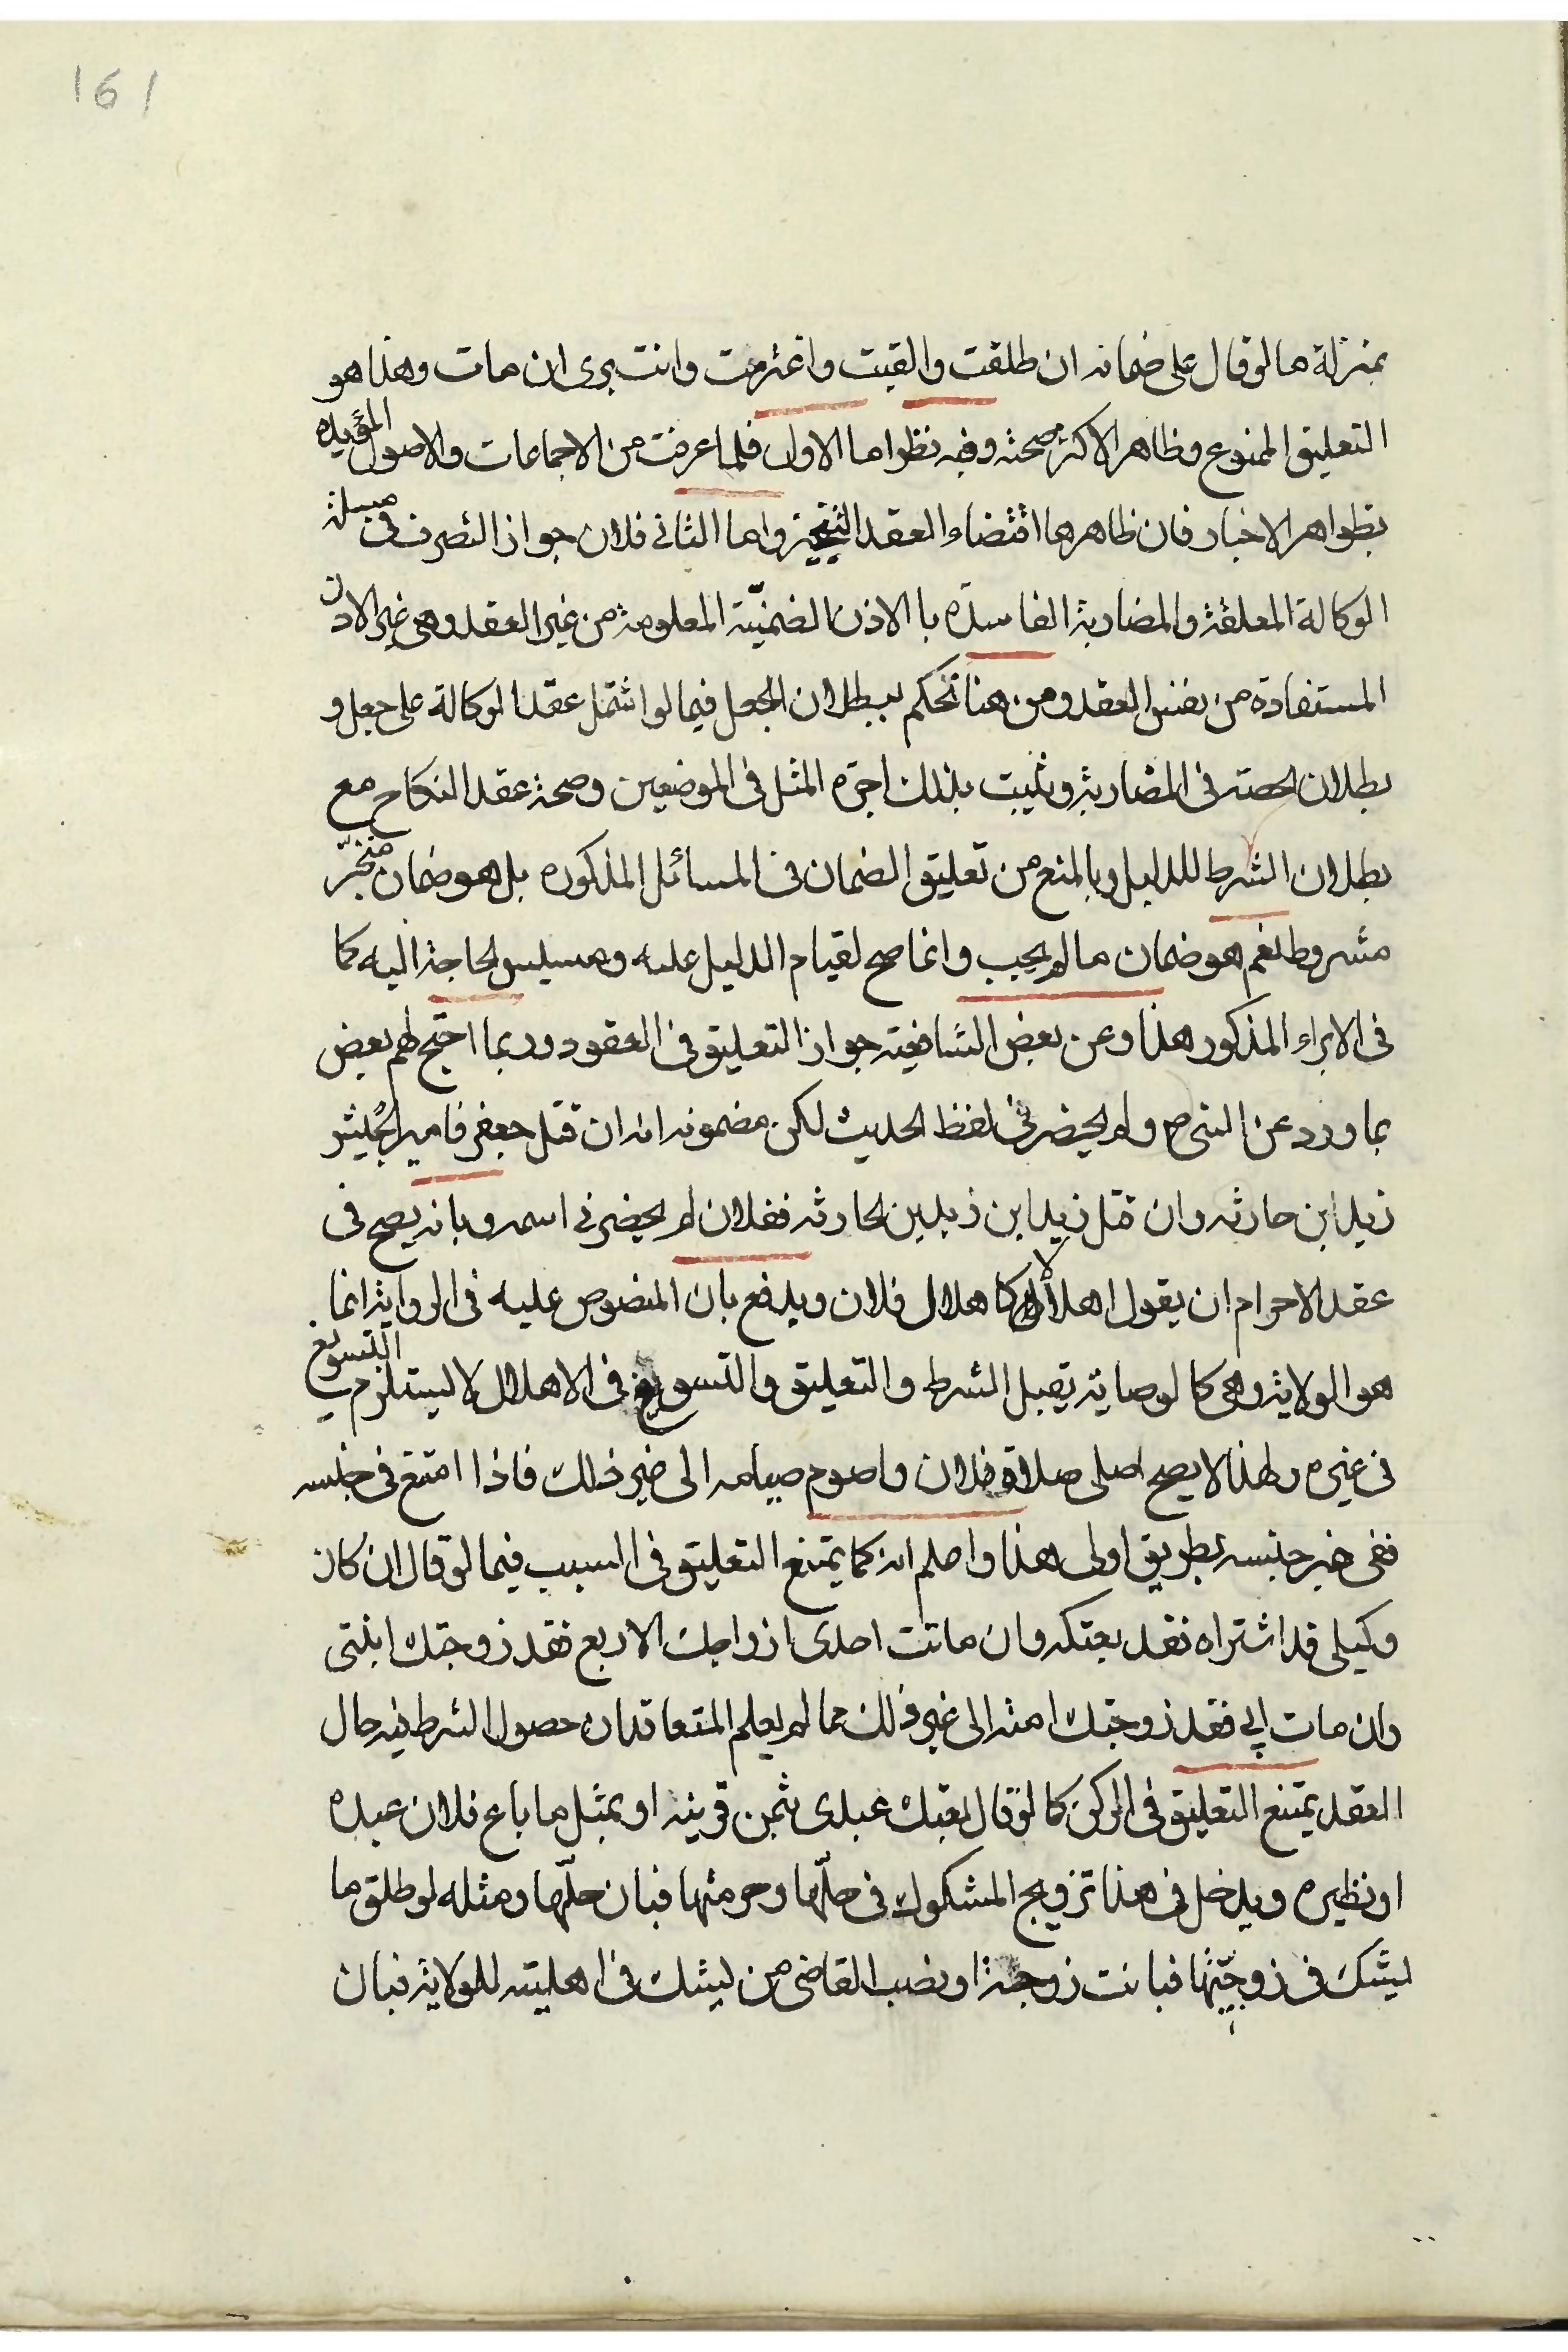 161
بمنزلة ما لو قال على ضمانه ان طلقت والقيت واغترمت وانت برى ان مات وهذا هو
التعليق الممنوع وظاهر الاكثر صحته وفيه نظر اما الاول فلما عرفت من الاجماعات والاصول المؤيده
بظواهر الاخبار فان ظاهرها اقتضاء العقد التنجيز واما الثانى فلان جواز التصرف فى مسئلة
الوكالة المعلقة والمضاربة الفاسده با الاذن الضمنيّة المعلومة من غير العقد وهى غير الاذن
المستفادة من نفس العقد ومن هنا نحكم ببطلان الجعل فيما لو اشتمل عقد الوكالة على جعل و
بطلان الحصة فى المضاربة ويثبت بذلك اجرة المثل فى الموضعين وصحة عقد النكاح مع
بطلان الشرط للدليل وبالمنع من تعليق الضمان فى المسائل المذكوره بل هو ضمان منجّز
مشروط نعم هو ضمان ما لم يجب وانما صح لقيام الدليل عليه ومسيس الحاجة اليه كما
فى الابراء المذكور هذا وعن بعض الشافعية جواز التعليق فى العقود وربما احتج لهم بعض
بما ورد عن النبى ص ولم يحضرنى لفظ الحديث لكن مضمونه انه ان قتل جعفر فامير الجيش
زيد ابن حارثه وان قتل زيد ابن زيد بن الحارثه ففلان لم يحضرنى اسمه وبانه يصح فى
عقد الاحرام ان يقول اهلالا كاهلال فلان ويدفع بان المنصوص عليه فى الرواية انما
هو الولاية وهى كالوصاية يقبل الشرط والتعليق والتسويغ فى الاهلال لا يستلزم التسويغ
فى غيره ولهذا لا يصح اصلى صلاة فلان واصوم صيامه الى غير ذلك فاذا امتنع فى جنسه
ففى غير جنسه بطريق اولى هذا واعلم انه كما يمتنع التعليق فى السبب فيما لو قال ان كان
وكيلى قد اشتراه فقد بعتكه وان ماتت احدى ازواجك الاربع فقد زوجتك ابنتى
وان مات ابى فقد زوجتك امته الى غير ذلك مما لم يعلم المتعاقدان حصول الشرط فيه حال
العقد يمتنع التعليق فى الركن كما لو قال بعتك عبدى بثمن قرينه او بمثل ما باع فلان عبده
او نظيره ويدخل فى هذا تزويج المشكوك فى حلّها وحرمتها فبان حلّها ومثله لو طلق ما
يشك فى زوجيّتها فبانت زوجة او نصب القاضى من يشك فى اهليته للولاية فبان